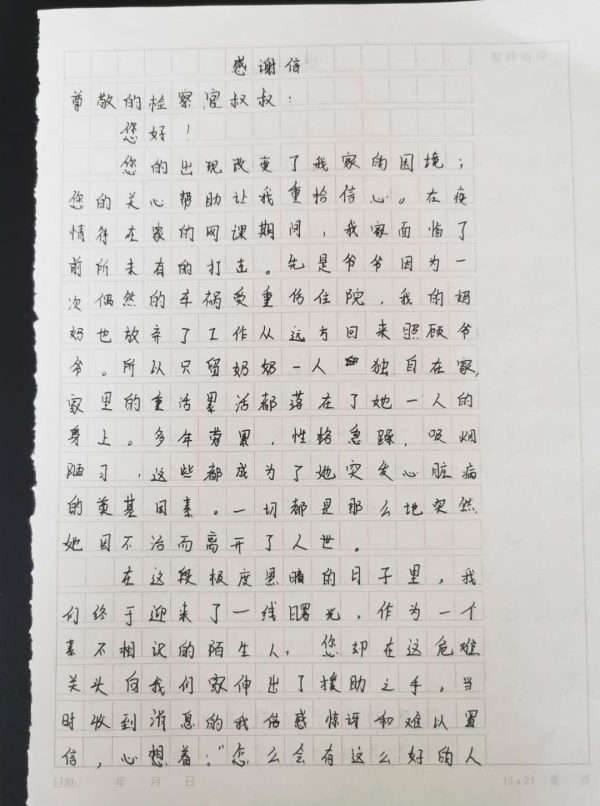 感谢信
尊敬的检察官叔叔：
您好！
您的出现改变了我家的困境；
您的关心帮助让我重拾信心。在疫
情待在家的网课期间，我家面临了
前所未有的打击。先是爷爷因为一
次偶然的车祸受重伤住院，我的妈
妈也放弃了工作从远方回来照顾爷
爷。所以只留奶奶一人 独自在家，
家里的重活累活都落在了她一人的
身上。多年劳累，性格急躁，吸烟
陋习，这些都成为了她突发心脏病
的奠基因素。一切都是那么地突然
她因不治而离开了人世。
在这段极度黑暗的日子里，我
们终于迎来了一线曙光，作为一个
素不相识的陌生人，您却在这危难
关头向我们家伸出了援助之手。当
时收到消息的我倍感惊讶和难以置
信，心想着："怎么会有这么好的人
日期： 年 月 日 15×21 第 页